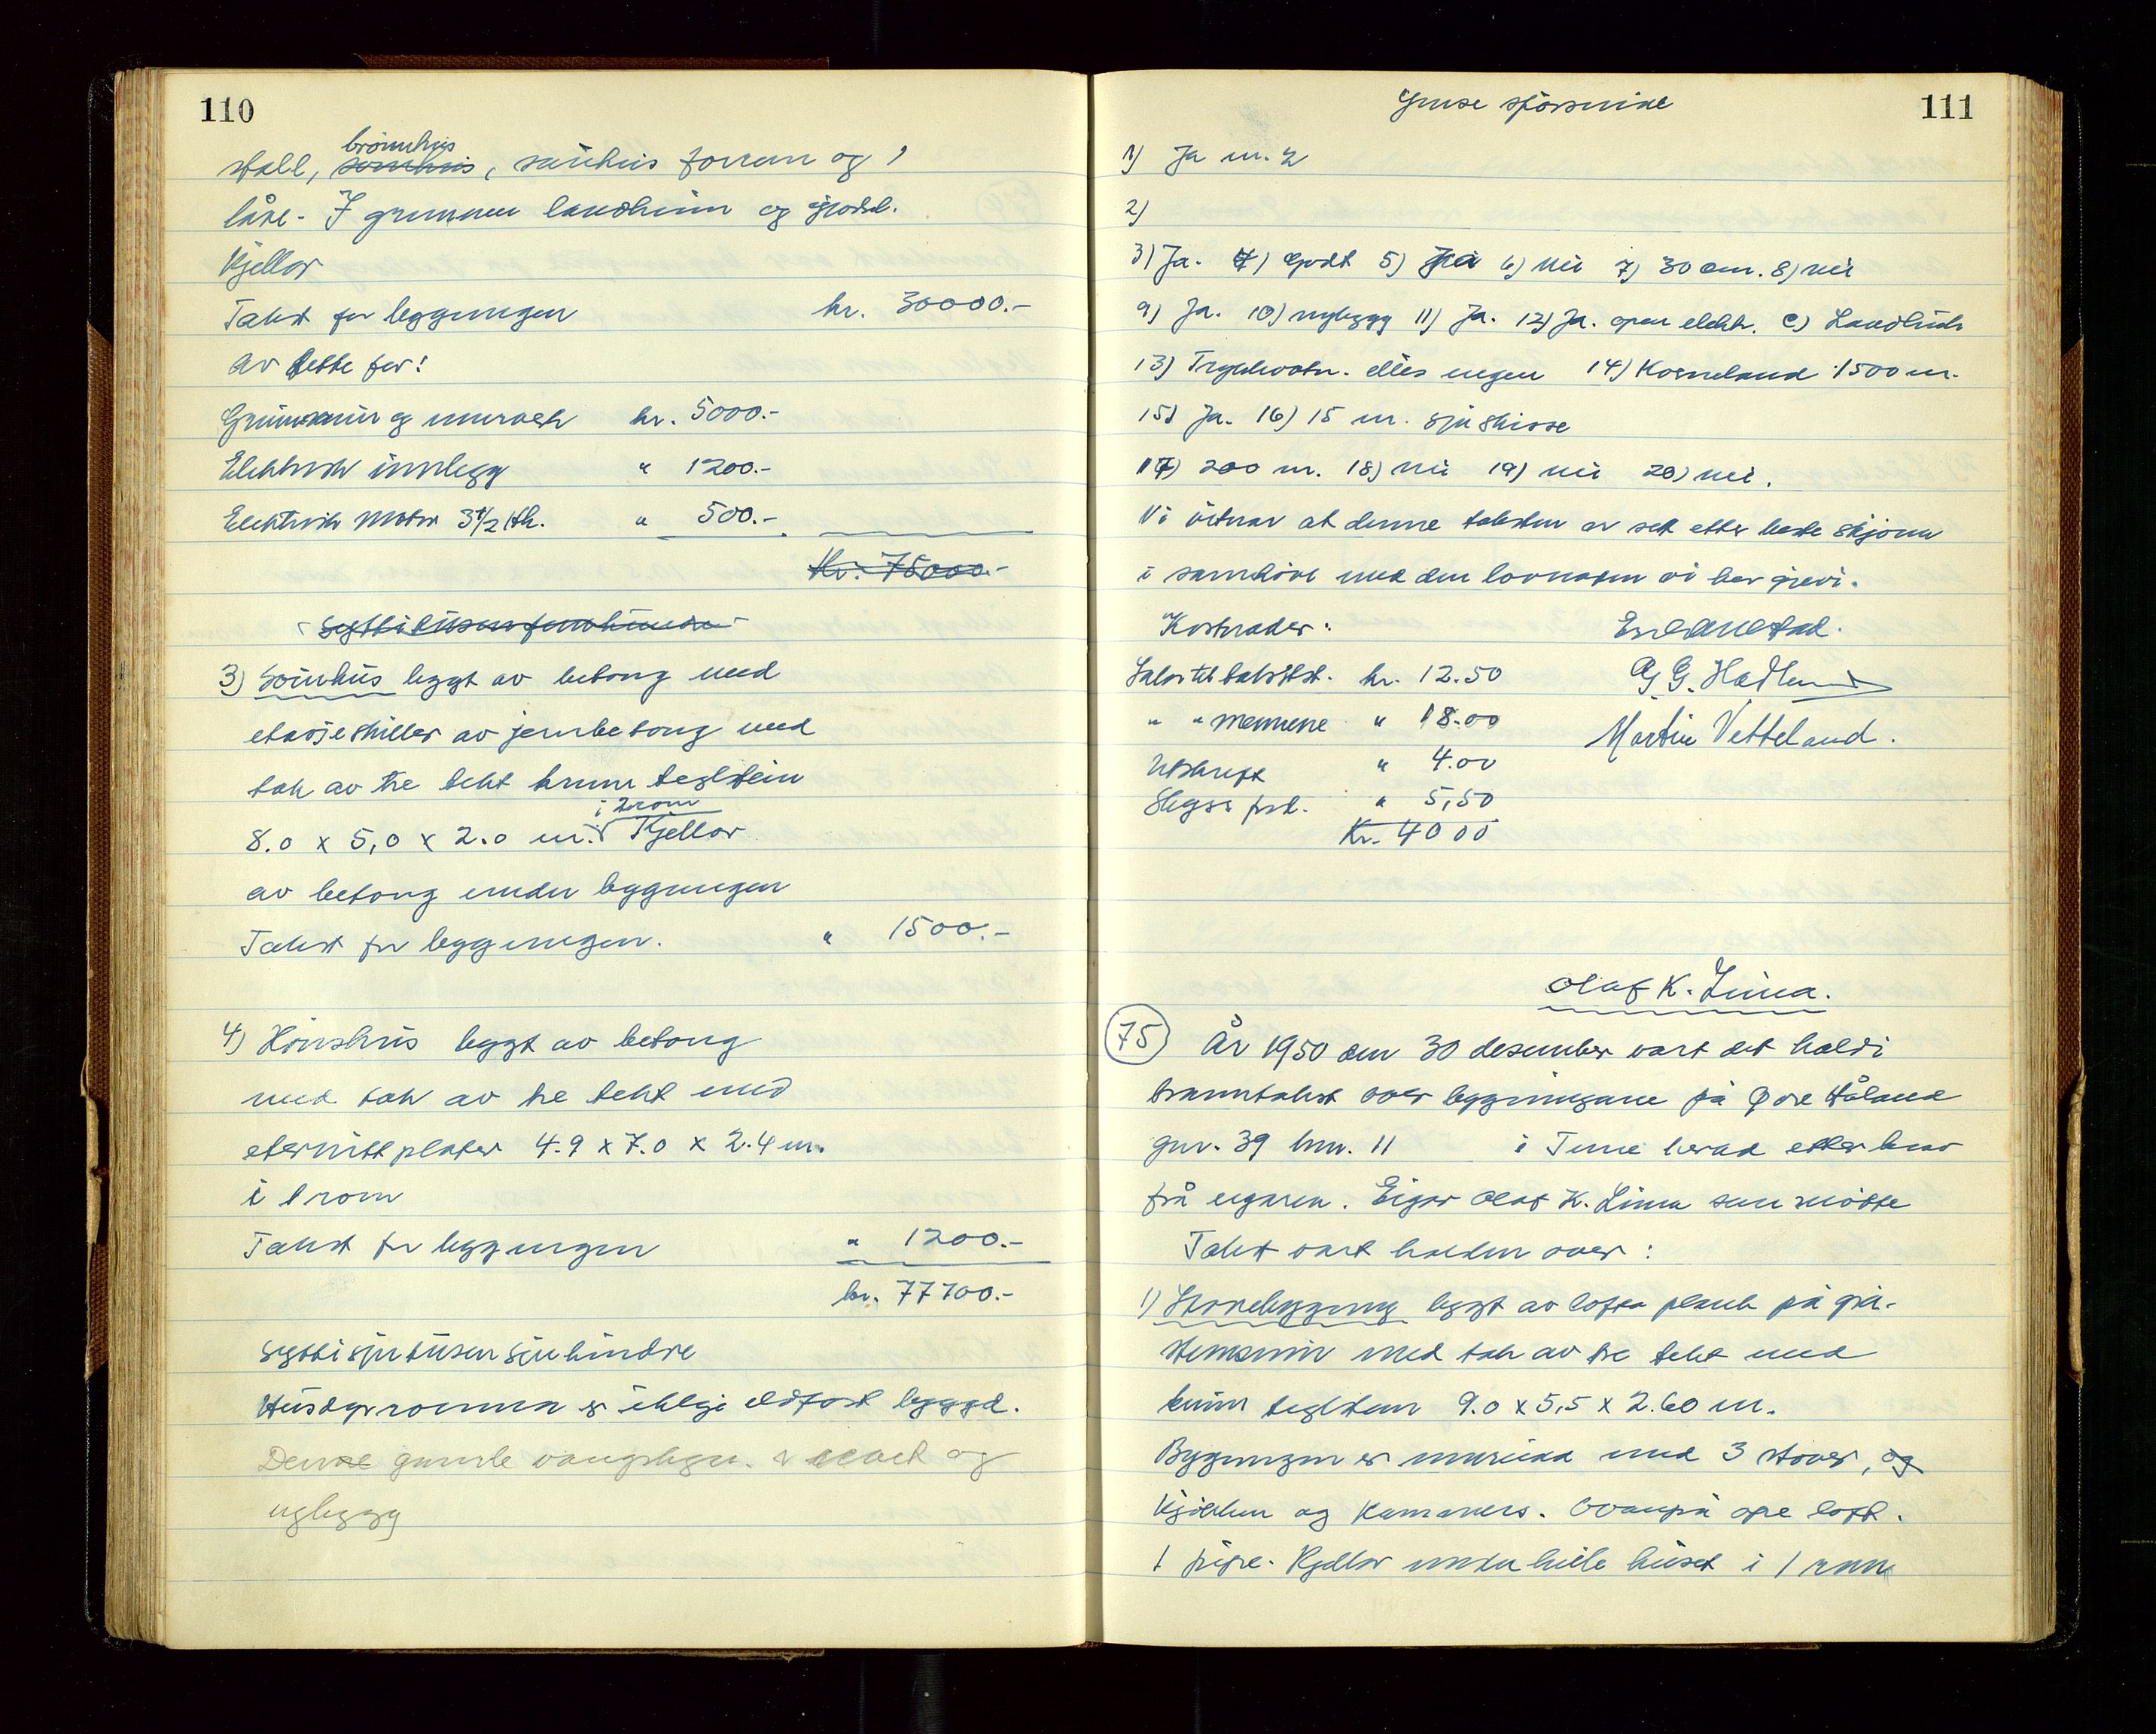 110
brønnhus
stall, sauehus forrom og 1
låve. I grunnen landkum og gjødsl.
Kjellar
Takst for byggingen kr. 30000.-
Av dette for:
Grunnmur og murverk kr. 5000.-
Elektrisk innlegg " 1200.-
Elektrisk Motor 3 1/2 Hk. " 500.-
Kr. 75000.-
syttitusenfemhundre
3) Sauehus bygt av betong med
etasjeskiller av jernbetong med
tak av tre tekt krum teglstein
i 2 rom
8.0 x 5,0 x 2.0 m. Kjellar
av betong under byggingen
Takst for byggingen. " 1500.-
4) Hønshus bygt av betong
med tak av tre tekt med
eternittplater 4.9 x 7.0 x 2.4 m.
i 1 rom
Takst for byggingen " 1200.-
kr. 77700.-
syttisjutusensjuhundre
Husdyrromma er ikkje eldfast byggd.
Denne gamle er revet og
nybygg
111
Ymse spørsmål
1) Ja m. 2
2)
3) Ja. 4) Godt 5) Ja 6) Nei 7) 30 cm. 8) nei
9) Ja. 10) nybygg 11) Ja. 12) Ja. open elektr. c) Landbruk
13) Trykkvatn. elles ingen 14) Kverneland 1500 m.
15) Ja. 16) 15 m. sjå skisse
17) 200 m. 18) nei 19) nei 20) nei.
Vi vitnar at denne taksten er sett etter beste skjønn
i samhøve med den lovnaden vi har gjevi.
Kostnader:
Salær til takstst. kr. 12.50
" " mennene " 18.00
Utskrift " 4.00
Skyss " 5,50
Kr. 4000
G. G. Hadland
Martin Vetteland.
Olaf K. Lima.
75 År 1950 den 30 desember vart det haldi
branntakst over byggningane på Øvre Håland
gnr. 39 bnr. 11 i Time herad etter krav
frå eigaren. Eigar Olaf K. Lima som møtte
Takst vart halden over:
1) Storebygging bygt av lofta plank på grå-
steinsmur med tak av tre tekt med
krum teglstein 9.0 x 5,5 x 2.60 m.
Byggingen er innreidd med 3 stover, og
Kjøkken og Kammers. Ovanpå ope loft.
1 pipe. Kjellar under heile huset i 1 rom